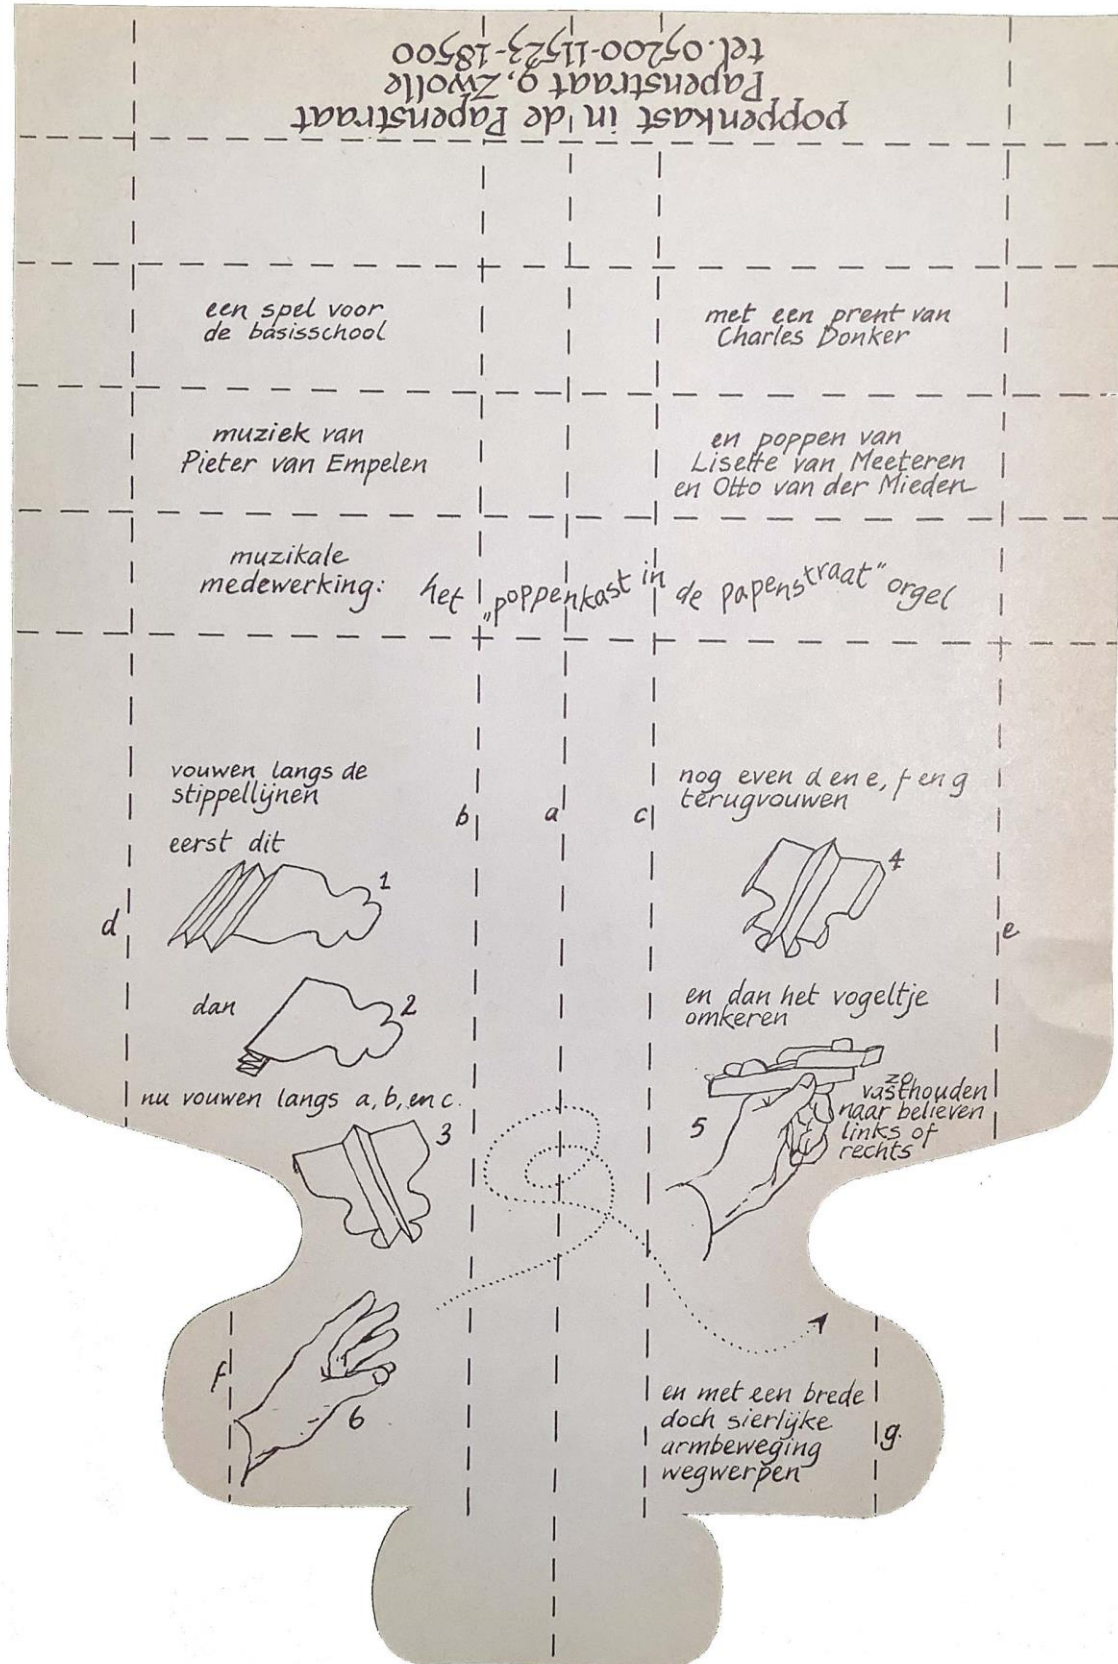 poppenkast in de Papenstraat
Papenstraat 9, Zwolle
tel. 05200-11523-18500
een spel voor
de basisschool
met een prent van
Charles Donker
muziek van
Pieter van Empelen
en poppen van
Lisette van Meeteren
en Otto van der Mieden
muzikale
medewerking: het „poppenkast in de papenstraat" orgel
vouwen langs de
stippellijnen
eerst dit
1
dan
2
nu vouwen langs a, b, en c.
3
b
a
c
d
e
nog even d en e, f en g
terugvouwen
4
en dan het vogeltje
omkeren
5
zo
vasthouden
naar believen
links of
rechts
f
6
en met een brede
doch sierlijke
armbeweging
wegwerpen
g.